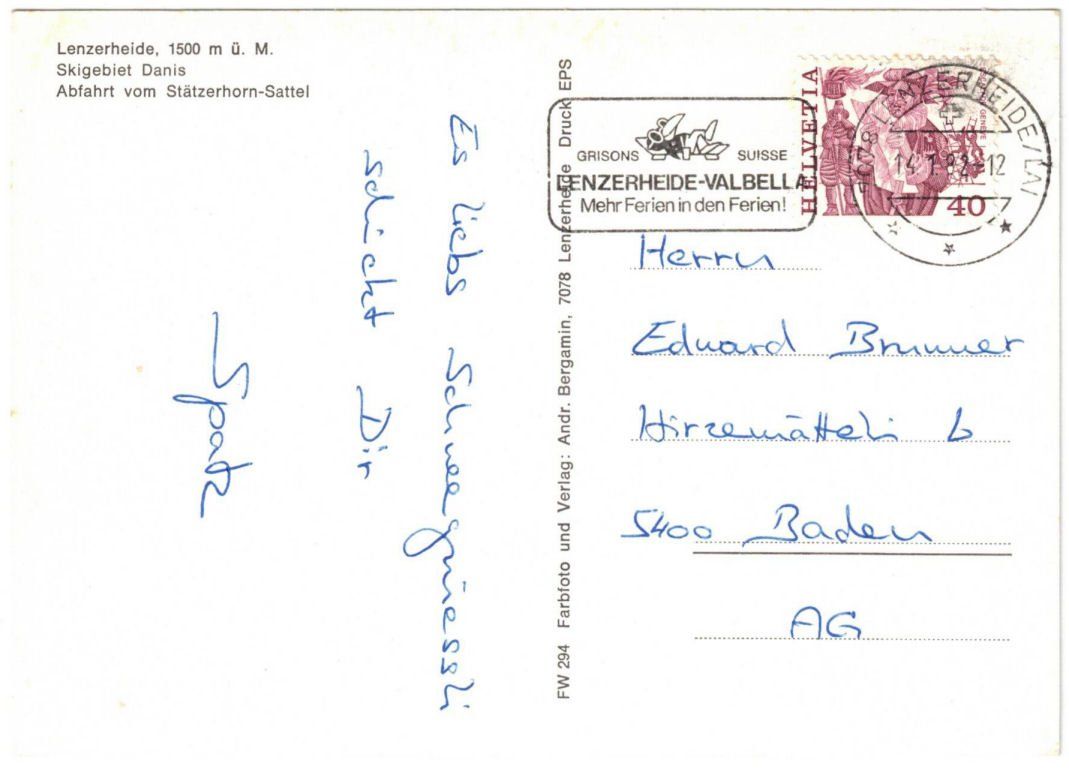 Lenzerheide, 1500 m ü. M.
Skigebiet Danis
Abfahrt vom Stätzerhorn-Sattel
Es liebs Schneegrüessli
schickt Dir
Spatz
FW 294 Farbfoto und Verlag: Andr. Bergamin, 7078 Lenzerheide Druck EPS
GRISONS SUISSE
LENZERHEIDE-VALBELLA
Mehr Ferien in den Ferien!
HELVETIA
GENÈVE
40
7078 LENZERHEIDE/LAI
14.1.82-12
Herrn
Eduard Brunner
Hirzemätteli 6
5400 Baden
AG